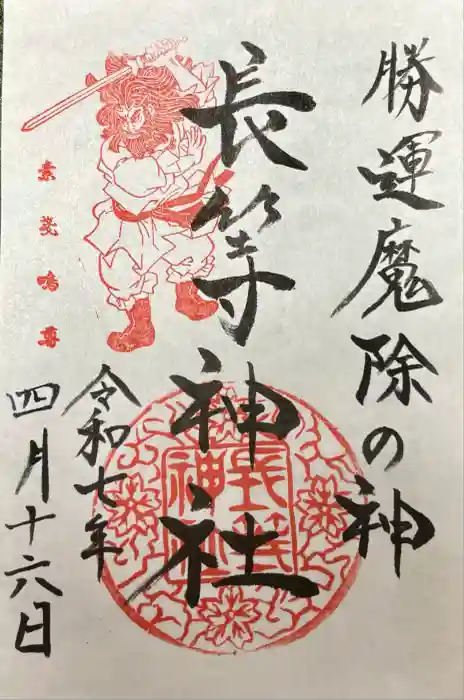 勝運魔除の神
長等神社
素戔嗚尊
令和七年
四月十六日
長等神社